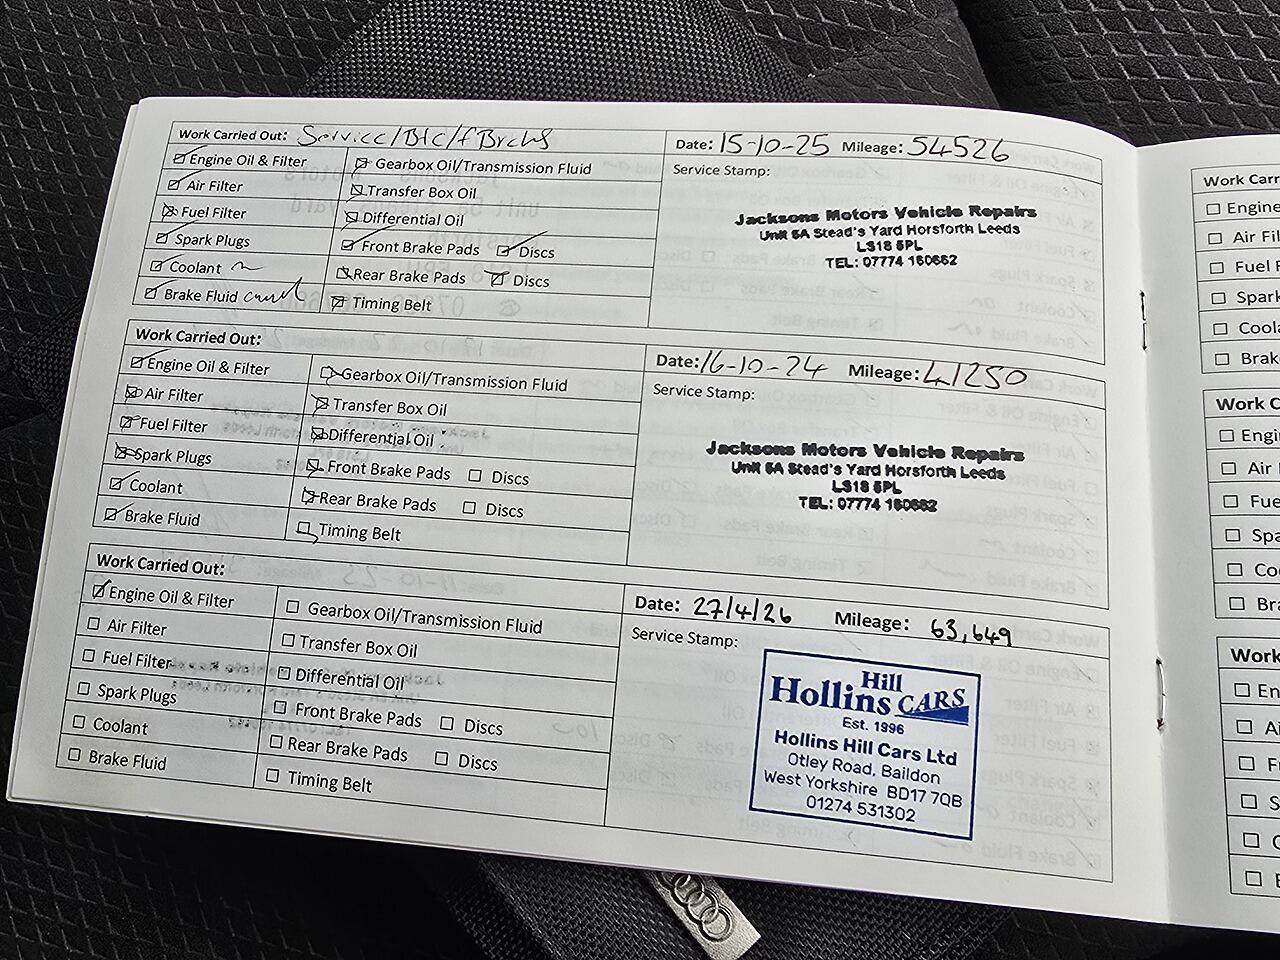 Work Carried Out: Service/
Date: 15-10-25 Mileage: 54526
Engine Oil & Filter
Gearbox Oil/Transmission Fluid
Service Stamp:
Air Filter
Transfer Box Oil
Fuel Filter
Differential Oil
Spark Plugs
Front Brake Pads Discs
Coolant
Rear Brake Pads Discs
Brake Fluid
Timing Belt
Jacksons Motors Vehicle Repairs
Unit 5A Stead's Yard Horsforth Leeds
LS18 5PL
TEL: 07774 160662
Work Carried Out:
Date: 16-10-24 Mileage: 41250
Engine Oil & Filter
Gearbox Oil/Transmission Fluid
Service Stamp:
Air Filter
Transfer Box Oil
Fuel Filter
Differential Oil
Spark Plugs
Front Brake Pads Discs
Coolant
Rear Brake Pads Discs
Brake Fluid
Timing Belt
Jacksons Motors Vehicle Repairs
Unit 5A Stead's Yard Horsforth Leeds
LS18 5PL
TEL: 07774 160662
Work Carried Out:
Date: 27/4/26 Mileage: 63,649
Engine Oil & Filter
Gearbox Oil/Transmission Fluid
Service Stamp:
Air Filter
Transfer Box Oil
Fuel Filter
Differential Oil
Spark Plugs
Front Brake Pads Discs
Coolant
Rear Brake Pads Discs
Brake Fluid
Timing Belt
Hollins Hill CARS
Est. 1996
Hollins Hill Cars Ltd
Otley Road, Baildon
West Yorkshire BD17 7QB
01274 531302
Work Carr
Engine
Air Fil
Fuel F
Spark
Coola
Brak
Work C
Engi
Air
Fue
Spa
Co
Bra
Work
En
A
F
S
C
B